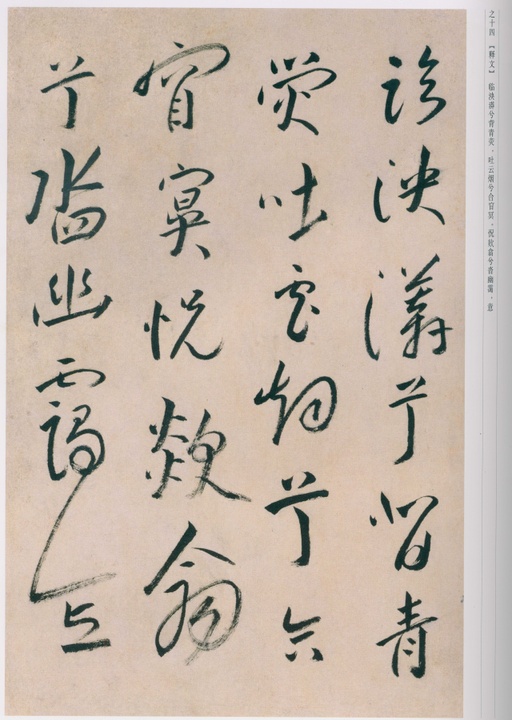 之十四 【释文】 临泱漭兮背青荧，吐云烟兮合窅冥，怳欻翕兮沓幽霭，意
臨泱漭兮背青
熒吐雲烟兮合
窅冥怳欻翕
兮沓幽靄意